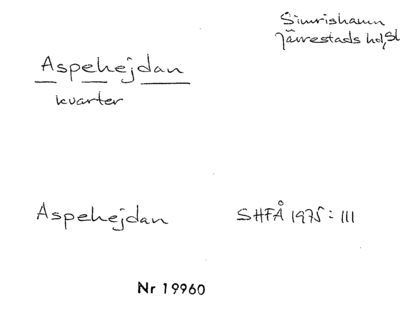 Simrishamn
Järrestads hd, Sk
Aspehejdan
kvarter
Aspehejdan SHFÅ 1975: III
Nr 19960